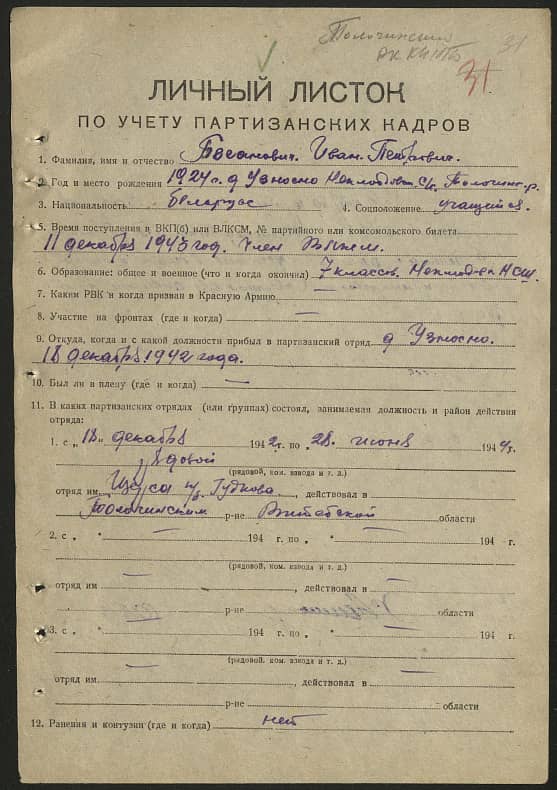 Толочинский
РК КП(б)Б
31
31
ЛИЧНЫЙ ЛИСТОК
ПО УЧЕТУ ПАРТИЗАНСКИХ КАДРОВ
1. Фамилия, имя и отчество Иван Петрович.
2. Год и место рождения 1924 г. д Узносно с/с. Толочинс. р.
3. Национальность беларус 4. Соцположение учащийся.
5. Время поступления в ВКП(б) или ВЛКСМ, № партийного или комсомольского билета
11 декабря 1943 год. Член ВЛКСМ.
6. Образование: общее и военное (что и когда окончил) 7 классов. НСШ.
7. Каким РВК и когда призван в Красную Армию —
8. Участие на фронтах (где и когда) —
9. Откуда, когда и с какой должности прибыл в партизанский отряд д Узносно.
18 декабря 1942 года.
10. Был ли в плену (где и когда) —
11. В каких партизанских отрядах (или группах) состоял, занимаемая должность и район действия
отряда:
1. с „18" декабря 1942 г. по 28. июня 1944 г.
рядовой
(рядовой, ком. взвода и т. д.)
отряд им. Гудкова, действовал в
Толочинским р-не Витебской области
2. с „ — " 194 г. по „ — " 194 г.
—
(рядовой, ком. взвода и т. д.)
отряд им —, действовал в —
р-не области
3. с „ — " 194 г. по „ — " 194 г.
—
(рядовой, ком. взвода и т. д.)
отряд им —, действовал в —
р-не области
12. Ранения и контузии (где и когда) нет